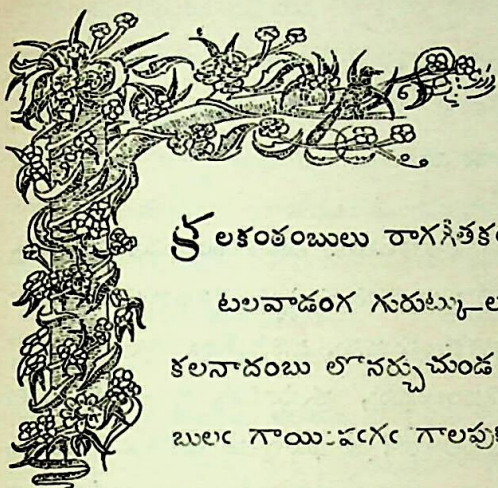 కలకంఠంబులు రాగగీతక
టలవాడంగ గురుట్కు-ల
కలనాదంబు లొనర్చుచుండ
బులఁ గాయి గాలపు